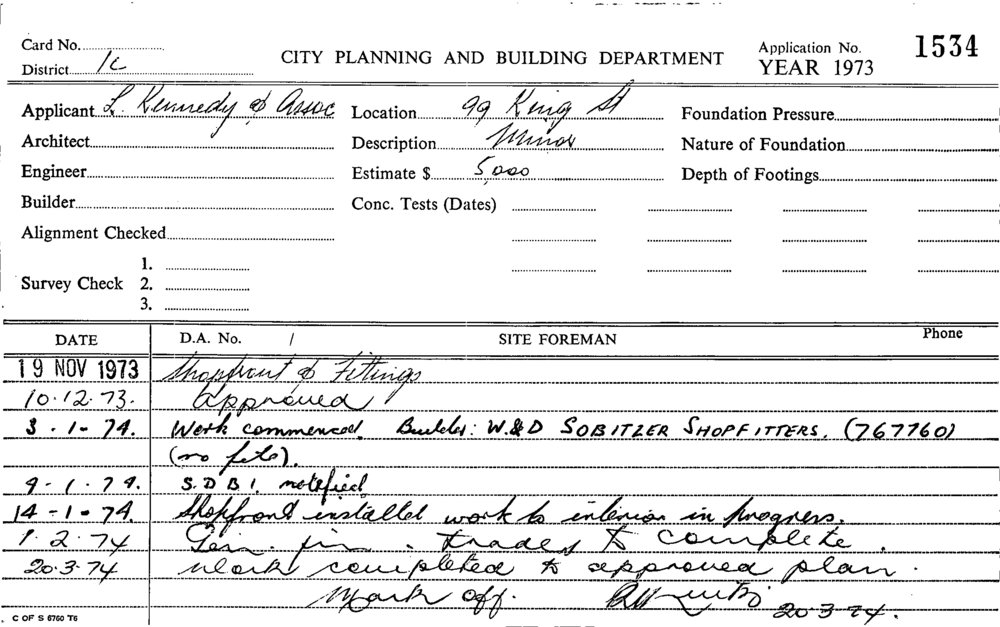 Card No.
District 1c
CITY PLANNING AND BUILDING DEPARTMENT
Application No. 1534
YEAR 1973
Applicant L. Kennedy & Assoc
Location 99 King St
Foundation Pressure
Architect
Description Minor
Nature of Foundation
Engineer
Estimate $ 5,000
Depth of Footings
Builder
Conc. Tests (Dates)
Alignment Checked
Survey Check 1.
2.
3.
DATE D.A. No. / SITE FOREMAN Phone
19 NOV 1973 Shopfront & Fittings
10.12.73. Approved
3.1-74. Work commenced. Builder: W.&D SOBITZER SHOPFITTERS. (767760)
(no file).
9-1.74. S.D.B.I. notified
14-1-74. Shopfront installed work to interior in progress.
1.2.74 trades to complete.
20.3.74 Work completed to approved plan.
Mark off. 20.3.74.
C OF S 6760 T6